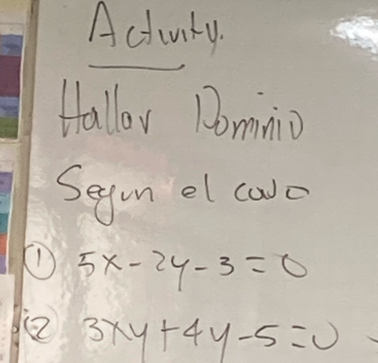 Activity.
Hallar Dominio
Segun el caso
① 5x-2y-3=0
② 3xy+4y-5=0